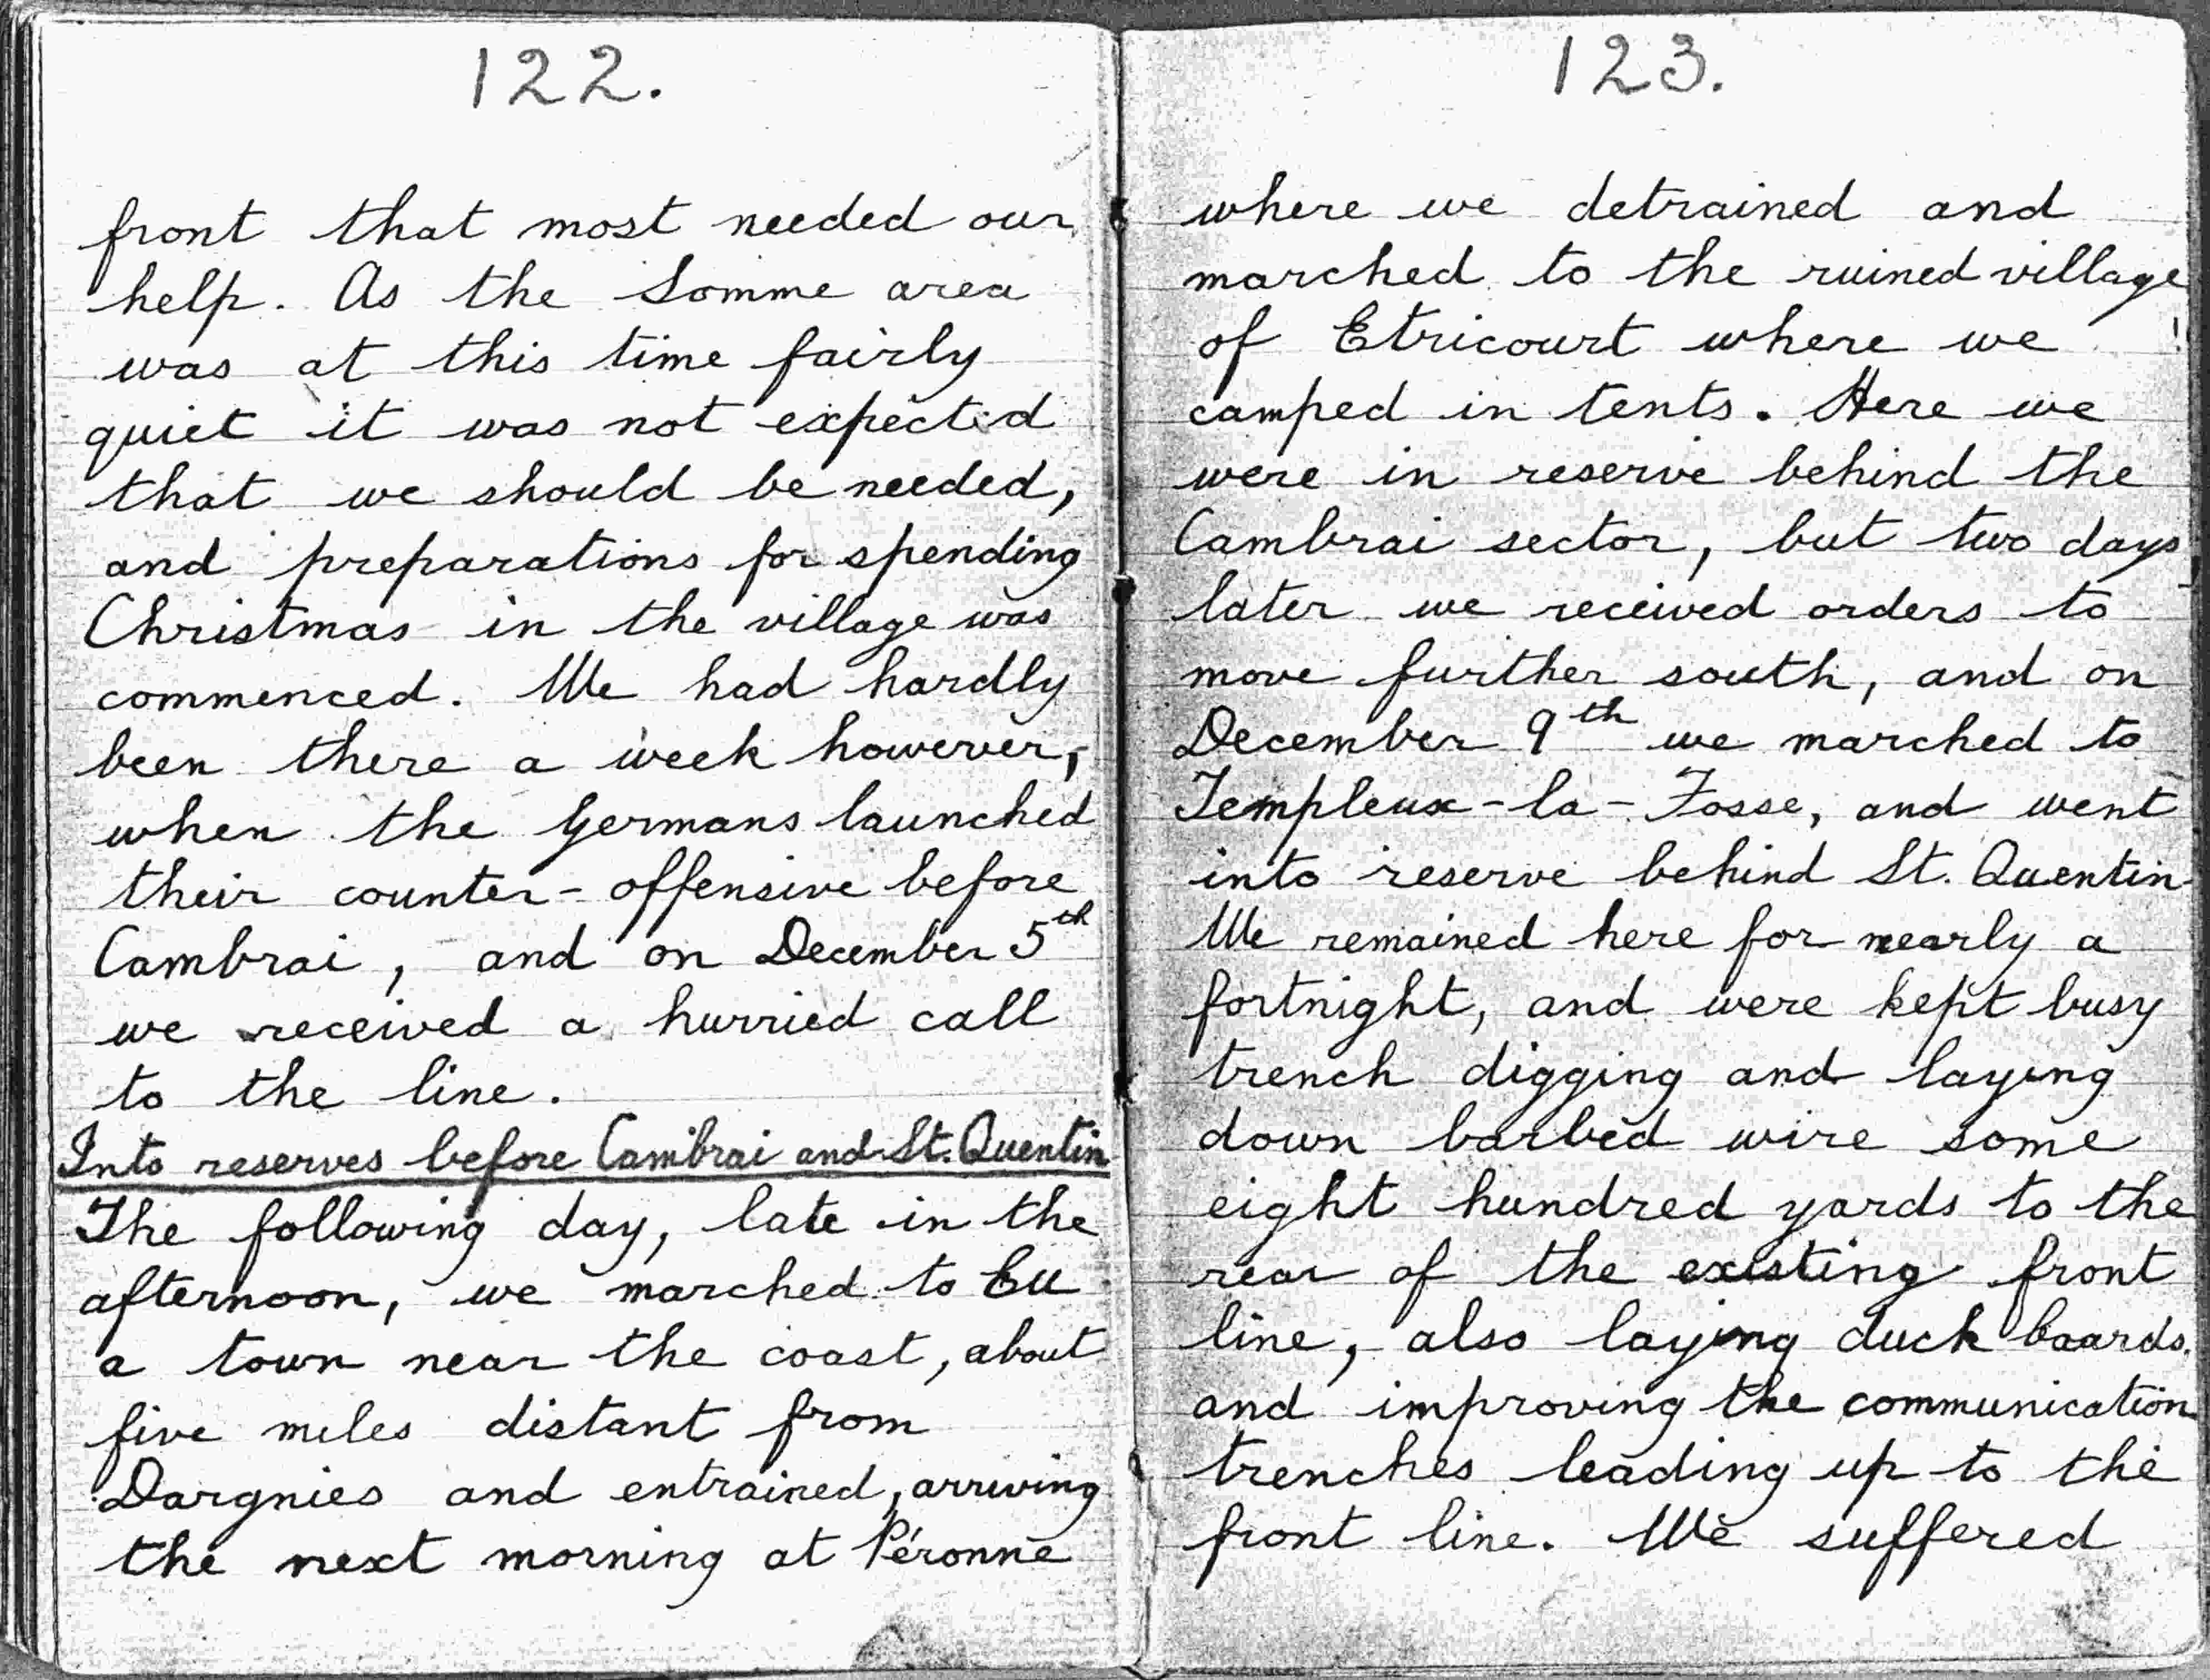 122.
front that most needed our
help. As the Somme area
was at this time fairly
quiet it was not expected
that we should be needed,
and preparations for spending
Christmas in the village was
commenced. We had hardly
been there a week however,
when the Germans launched
their counter-offensive before
Cambrai, and on December 5th
we received a hurried call
to the line.
Into reserves before Cambrai and St. Quentin
The following day, late in the
afternoon, we marched to Eu
a town near the coast, about
five miles distant from
Dargnies and entrained, arriving
the next morning at Péronne
123.
where we detrained and
marched to the ruined village
of Etricourt where we
camped in tents. Here we
were in reserve behind the
Cambrai sector, but two days
later we received orders to
move further south, and on
December 9th we marched to
Templeux-la-Fosse, and went
into reserve behind St. Quentin
We remained here for nearly a
fortnight, and were kept busy
trench digging and laying
down barbed wire some
eight hundred yards to the
rear of the existing front
line, also laying duck boards,
and improving the communication
trenches leading up to the
front line. We suffered